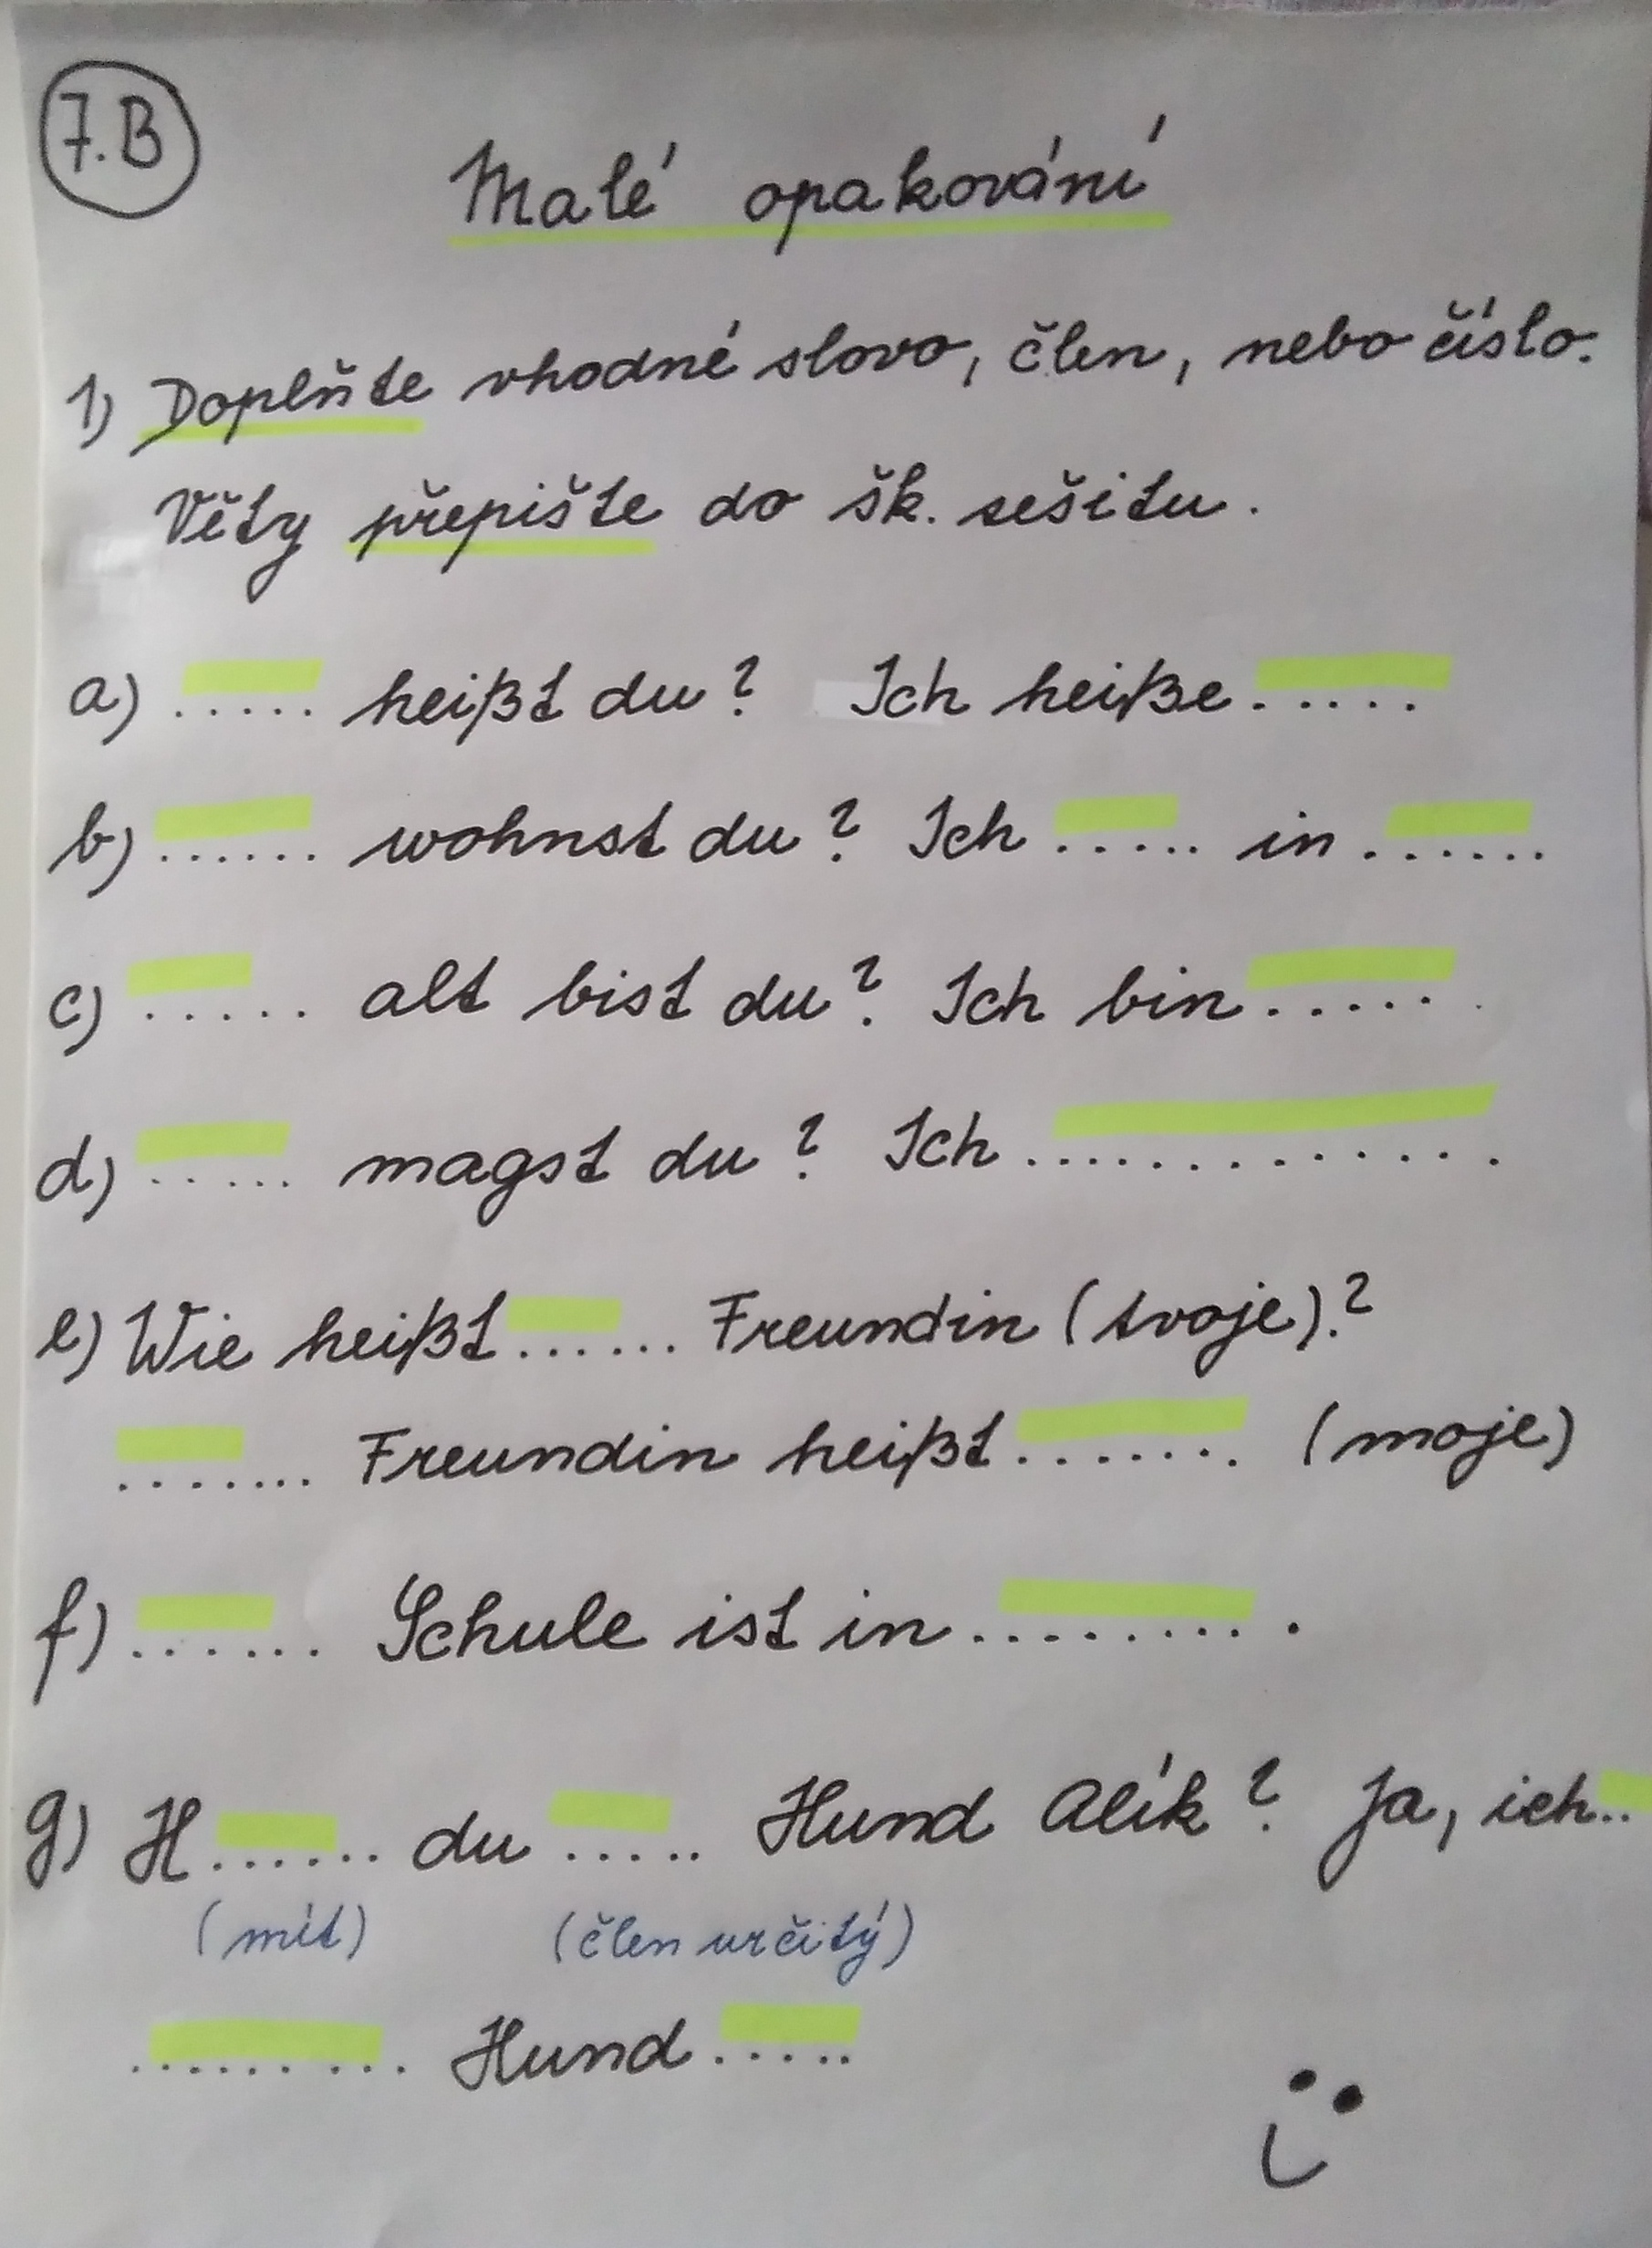 7.B
Malé opakování
1) Doplňte vhodné slovo, člen, nebo číslo.
Věty přepište do šk. sešitu.
a) ..... heißt du? Ich heiße .....
b) ...... wohnst du? Ich ..... in ......
c) ..... alt bist du? Ich bin ......
d) ..... magst du? Ich ..............
e) Wie heißt ...... Freundin (tvoje)?
........ Freundin heißt ....... (moje)
f) ...... Schule ist in ........ .
g) H...... du ..... Hund Alík? Ja, ich..
(mít) (člen určitý)
......... Hund .....